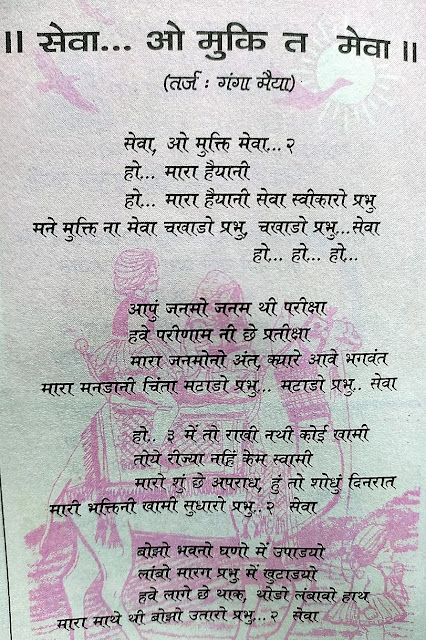 ॥ सेवा... ओ मुकि त मेवा ॥
(तर्ज : गंगा मैया)
सेवा, ओ मुक्ति मेवा...२
हो... मारा हैयानी
हो... मारा हैयानी सेवा स्वीकारो प्रभु
मने मुक्ति ना मेवा चखाडो प्रभु, चखाडो प्रभु...सेवा
हो... हो... हो...
आपुं जनमो जनम थी परीक्षा
हवे परीणाम नी छे प्रतीक्षा
मारा जनमोनो अंत, क्यारे आवे भगवंत
मारा मनडानी चिंता मटाडो प्रभु... मटाडो प्रभु.. सेवा
हो.. ३ में तो राखी नथी कोई खामी
तोये रीज्या नहिं केम स्वामी
मारो शुं छे अपराध, हुं तो शोधुं दिनरात
मारी भक्तिनी खामी सुधारो प्रभु..२ सेवा
बोझो भवनो घणो में उपाडयो
लांबो मारग प्रभु में खुटाडयो
हवे लागे छे थाक, थोडो लंबावो हाथ
मारा माथे थी बोझो उतारो प्रभु...२ सेवा